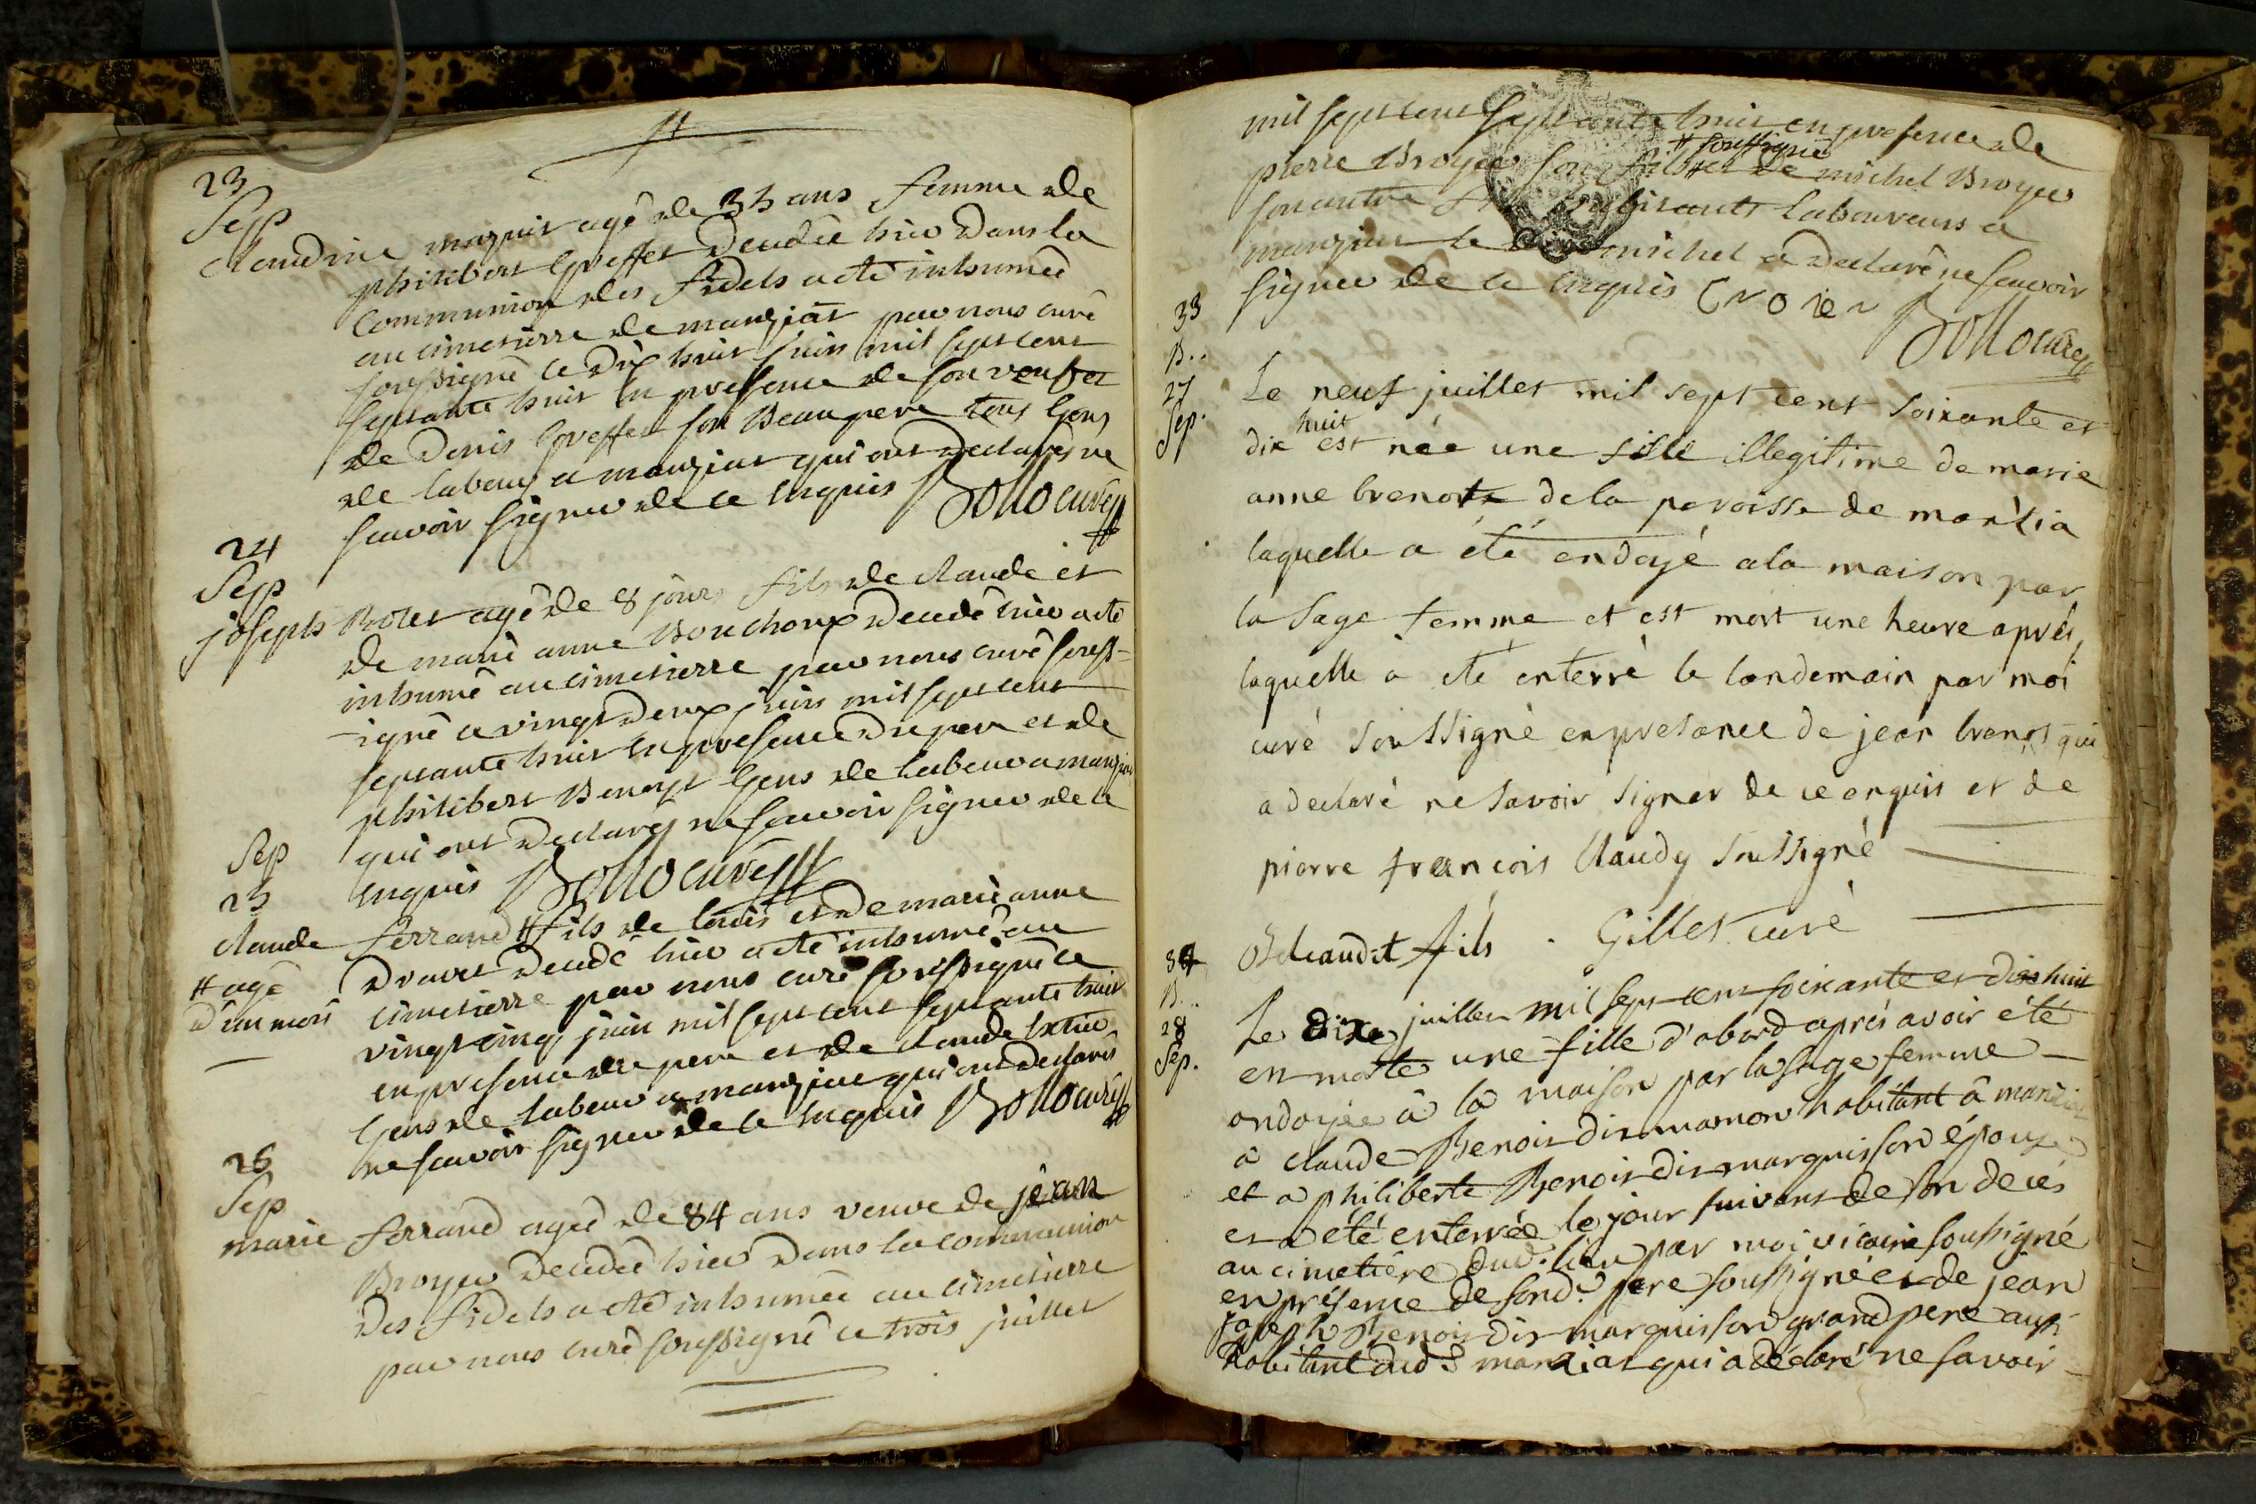 23
Sep
Claudine maguit agê de 35 ans femme de
philibert Greffet decedée hier dans la
Communion des fidels a eté inhumée
au cimetierre de manziat par nous curé
soussignê ce dix huit juin mil sept cent
septante huit en presence de son veuf et
de Denis Greffet son Beaupere tous gens
de labeur a manziat qui ont declarés ne
scavoir signer de ce enquis Bollo curé
24
Sep
joseph Boter agê de 8 jours fils de claude et
de marie anne Bouchoux decedé hier a eté
inhumé au cimetierre par nous curé souss-
-igné ce vingt deux juin mil sept cent
septante huit en presence du pere et de
philibert Benoist gens de labeur a manziat
qui ont declarés ne scavoir signer de ce
enquis Bollo curé
Sep
25
claude ferrand # fils de louis et de marie anne
# agê
d'un mois
Dravet decedé hier a eté inhumé au
cimetierre par nous curé soussigné ce
vingt cinq juin mil sept cent septante huit
en presence du pere et de claude
gens de labeur a manziat qui ont declarés
ne scavoir signer de ce enquis Bollo curé
26
Sep
marie ferrand agée de 84 ans veuve de jean
Broyer decedée hier dans la communion
des fidels a eté inhumée au cimetierre
par nous curé soussigné ce trois juillet
mil sept cent septante huit en presence de
pierre Broyer son fils # soussigné et de michel Broyer
son autre laboureurs a
manziat le michel a declaré ne scavoir
signer de ce enquis Broier
Bollo curé
33
B..
27
Sep.
Le neuf juillet mil sept cent soixante et
dix huit est née une fille illegitime de marie
anne brenot de la paroisse de manzia
laquelle a été endoyé a la maison par
la sage femme et est mort une heure aprés,
laquelle a eté enterré le landemain par moi
curé soussigné en presance de jean brenot qui
a declaré ne savoir signer de ce enquis et de
pierre francois Claudy soussigné
Gillet curé
34
B..
28
Sep.
Le dix juillet mil sept cent soixante et dix huit
est morte une fille d'abord aprés avoir été
ondoyée à la maison par la sage femme
à claude Benoit dit mamon habitant â manziat
et a philiberte Benoit dit marquis son épouse
et a été enterrée le jour suivant de son decés
au cimetière dud. lieu par moi vicaire soussigné
en présence de sond. pere soussigné et de jean
joseph Benoit dit marquis son grand pere aussi
habitant dud. manziat qui a déclaré ne savoir